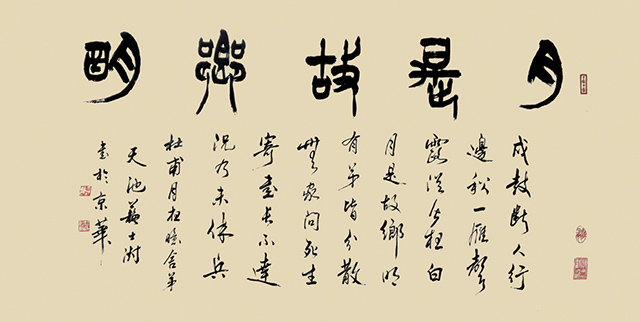 月是故鄉明
戍鼓斷人行
邊秋一雁聲
露從今夜白
月是故鄉明
有弟皆分散
無家問死生
寄書長不達
況乃未休兵
杜甫月夜憶舍弟
天池蘇士澍
書於京華